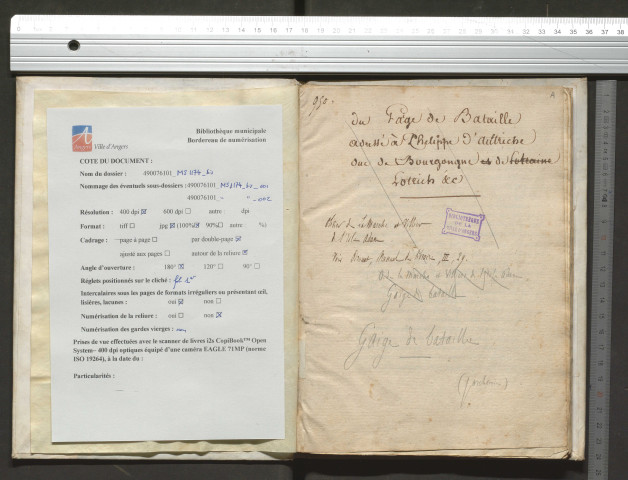 Bibliothèque municipale
Bordereau de numérisation
Ville d'Angers
COTE DU DOCUMENT :
Nom du dossier : 490076101_MS 1174_bo
Nommage des éventuels sous-dossiers : 490076101_MS 1174_bo_001
490076101_
Résolution : 400 dpi ☒ 600 dpi ☐ autre : dpi
Format : tiff ☐ jpg ☒ (100%☒ 90%☐ autre : %)
Cadrage : -page à page ☐ par double-page ☒
ajusté aux pages ☐ autour de la reliure ☒
Angle d'ouverture : 180° ☒ 120° ☐ 90° ☐
Réglets positionnés sur le cliché :
Intercalaires sous les pages de formats irréguliers ou présentant œil,
lisières, lacunes : oui ☒ non ☐
Numérisation de la reliure : oui ☐ non ☒
Numérisation des gardes vierges :
Prises de vue effectuées avec le scanner de livres i2s CopiBook™ Open
System– 400 dpi optiques équipé d'une caméra EAGLE 71MP (norme
ISO 19264), à la date du :
Particularités :
950. A
du Gage de Bataille
adressé à Philippe d'Autriche
duc de Bourgongne et de Lotraine
Lotrich &c
BIBLIOTHÈQUE DE LA VILLE
de l'Isle Adam
Voir Brunet, Manuel du libraire, II, 
Gage de bataille
Gaige de bataille